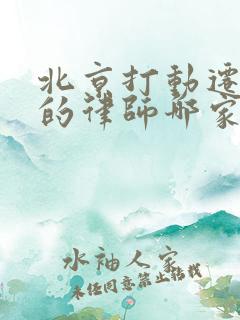 北京打動遷
的律師哪家
水袖人家
未经同意禁止转载